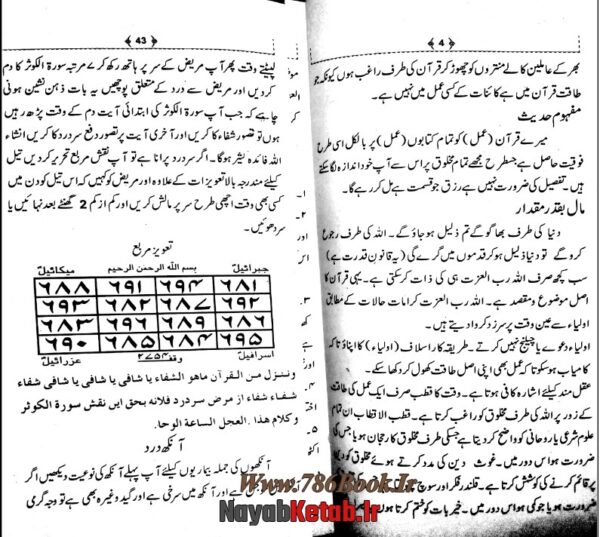 ﴿ 4 ﴾
بھر کے عاملین کالے منتروں کو چھوڑ کر قرآن کی طرف راغب ہوں کیونکہ جو
طاقت قرآن میں ہے کائنات کے کسی عمل میں نہیں ہے۔
مفہوم حدیث
میرے قرآن (عمل) کو تمام کتابوں (عمل) پر بالکل اسی طرح
فوقیت حاصل ہے جسطرح مجھے تمام مخلوق پر اس سے آپ خود اندازہ لگا سکتے
ہیں۔ تفصیل کی ضرورت نہیں ہے رزق جو قسمت ہے مل کر رہے گا۔
مال بقدر مقدار
دنیا کی طرف بھاگو گے تم ذلیل ہو جاؤ گے۔ اللہ کی طرف رجوع
کرو گے تو دنیا ذلیل ہو کر قدموں میں گرے گی (یہ قانون قدرت ہے)
سب کچھ صرف اللہ رب العزت ہی کی ذات کر سکتی ہے۔ یہی قرآن کا
اصل موضوع و مقصد ہے۔ اللہ رب العزت کرامات حالات کے مطابق
اولیاء سے عین وقت پر سرزد کروا دیتے ہیں۔
اولیاء دعوے یا چیلنج نہیں کرتے۔ طریقہ کار اسلاف (اولیاء) کا اپناؤ تا کہ
کامیاب ہو سکو تا کہ عمل بھی اپنی اصل طاقت کھول کر دکھا سکے۔
عقل مند کیلئے اشارہ کافی ہوتا ہے۔ وقت کا قطب صرف ایک عمل کی طاقت
کے زور پر اللہ کی طرف مخلوق کو راغب کرتا ہے۔ قطب الاقطاب ان تمام
علوم شرعی یا روحانی کو واضح کر دیتا ہے جسکی طرف مخلوق کا رجحان ہو یا جس کی
ضرورت ہو اس دور میں۔ غوث دین کی مدد کرتے ہوئے مخلوق کو دین
پر قائم کرنے کی کوشش کرتا ہے۔ قلندر فکر اور سوچ
ضرورت ہو یا جو کمی ہو اس دور میں۔ خیر بات کو ختم کرتا ہوں
﴿ 43 ﴾
لیپٹیے وقت پھر آپ مریض کے سر پر ہاتھ رکھ کر ۷ مرتبہ سورۃ الکوثر کا دم
کر دیں اور مریض سے درد کے متعلق پوچھیں یہ بات ذہن نشین ہونی
چاہیے کہ جب آپ سورۃ الکوثر کی ابتدائی آیت دم کے وقت پڑھ رہیں
ہوں تو تصور شفاء کا کریں اور آخری آیت پر تصور دفع سر درد کا کریں انشاء
اللہ فائدہ بشر ہوگا۔ اگر سر درد پرانا ہے تو آپ نقش مربع تحریر کر دیں تیل
کیلئے مندرجہ بالا تعویزات کے علاوہ اور مریض کو کہیں کہ اس تیل کو دن میں
کسی بھی وقت اچھی طرح سر پر مالش کریں اور کم از کم 2 گھنٹے بعد نہائیں یا
سر دھوئیں۔
تعویز مربع
میکائیل بسم اللہ الرحمن الرحیم جبرائیل
۶۸۸ ۶۹۱ ۶۹۴ ۶۸۱
۶۹۳ ۶۸۲ ۶۸۷ ۶۹۲
۶۸۳ ۶۹۶ ۶۸۹ ۶۸۶
۶۹۰ ۶۸۵ ۶۸۴ ۶۹۵
عزرائیل وفقہ ۲۷۵۴ اسرافیل
وننزل من القرآن ماھو الشفاء یا شافی یا شافی یا شافی شفاء
شفاء شفاء از مرض سردرد فلانہ بحق ایں نقش سورۃ الکوثر
و کلام ھذا۔ العجل الساعۃ الوحا۔
آنکھ درد
آنکھوں کی جملہ بیماریوں کیلئے آپ پہلے آنکھ کی نوعیت دیکھیں اگر
ہے اور آنکھ میں سرخی ہے اور گید وغیرہ بھی ہے تو وجہ گرمی
www.786Book.Ir
NayabKetab.Ir